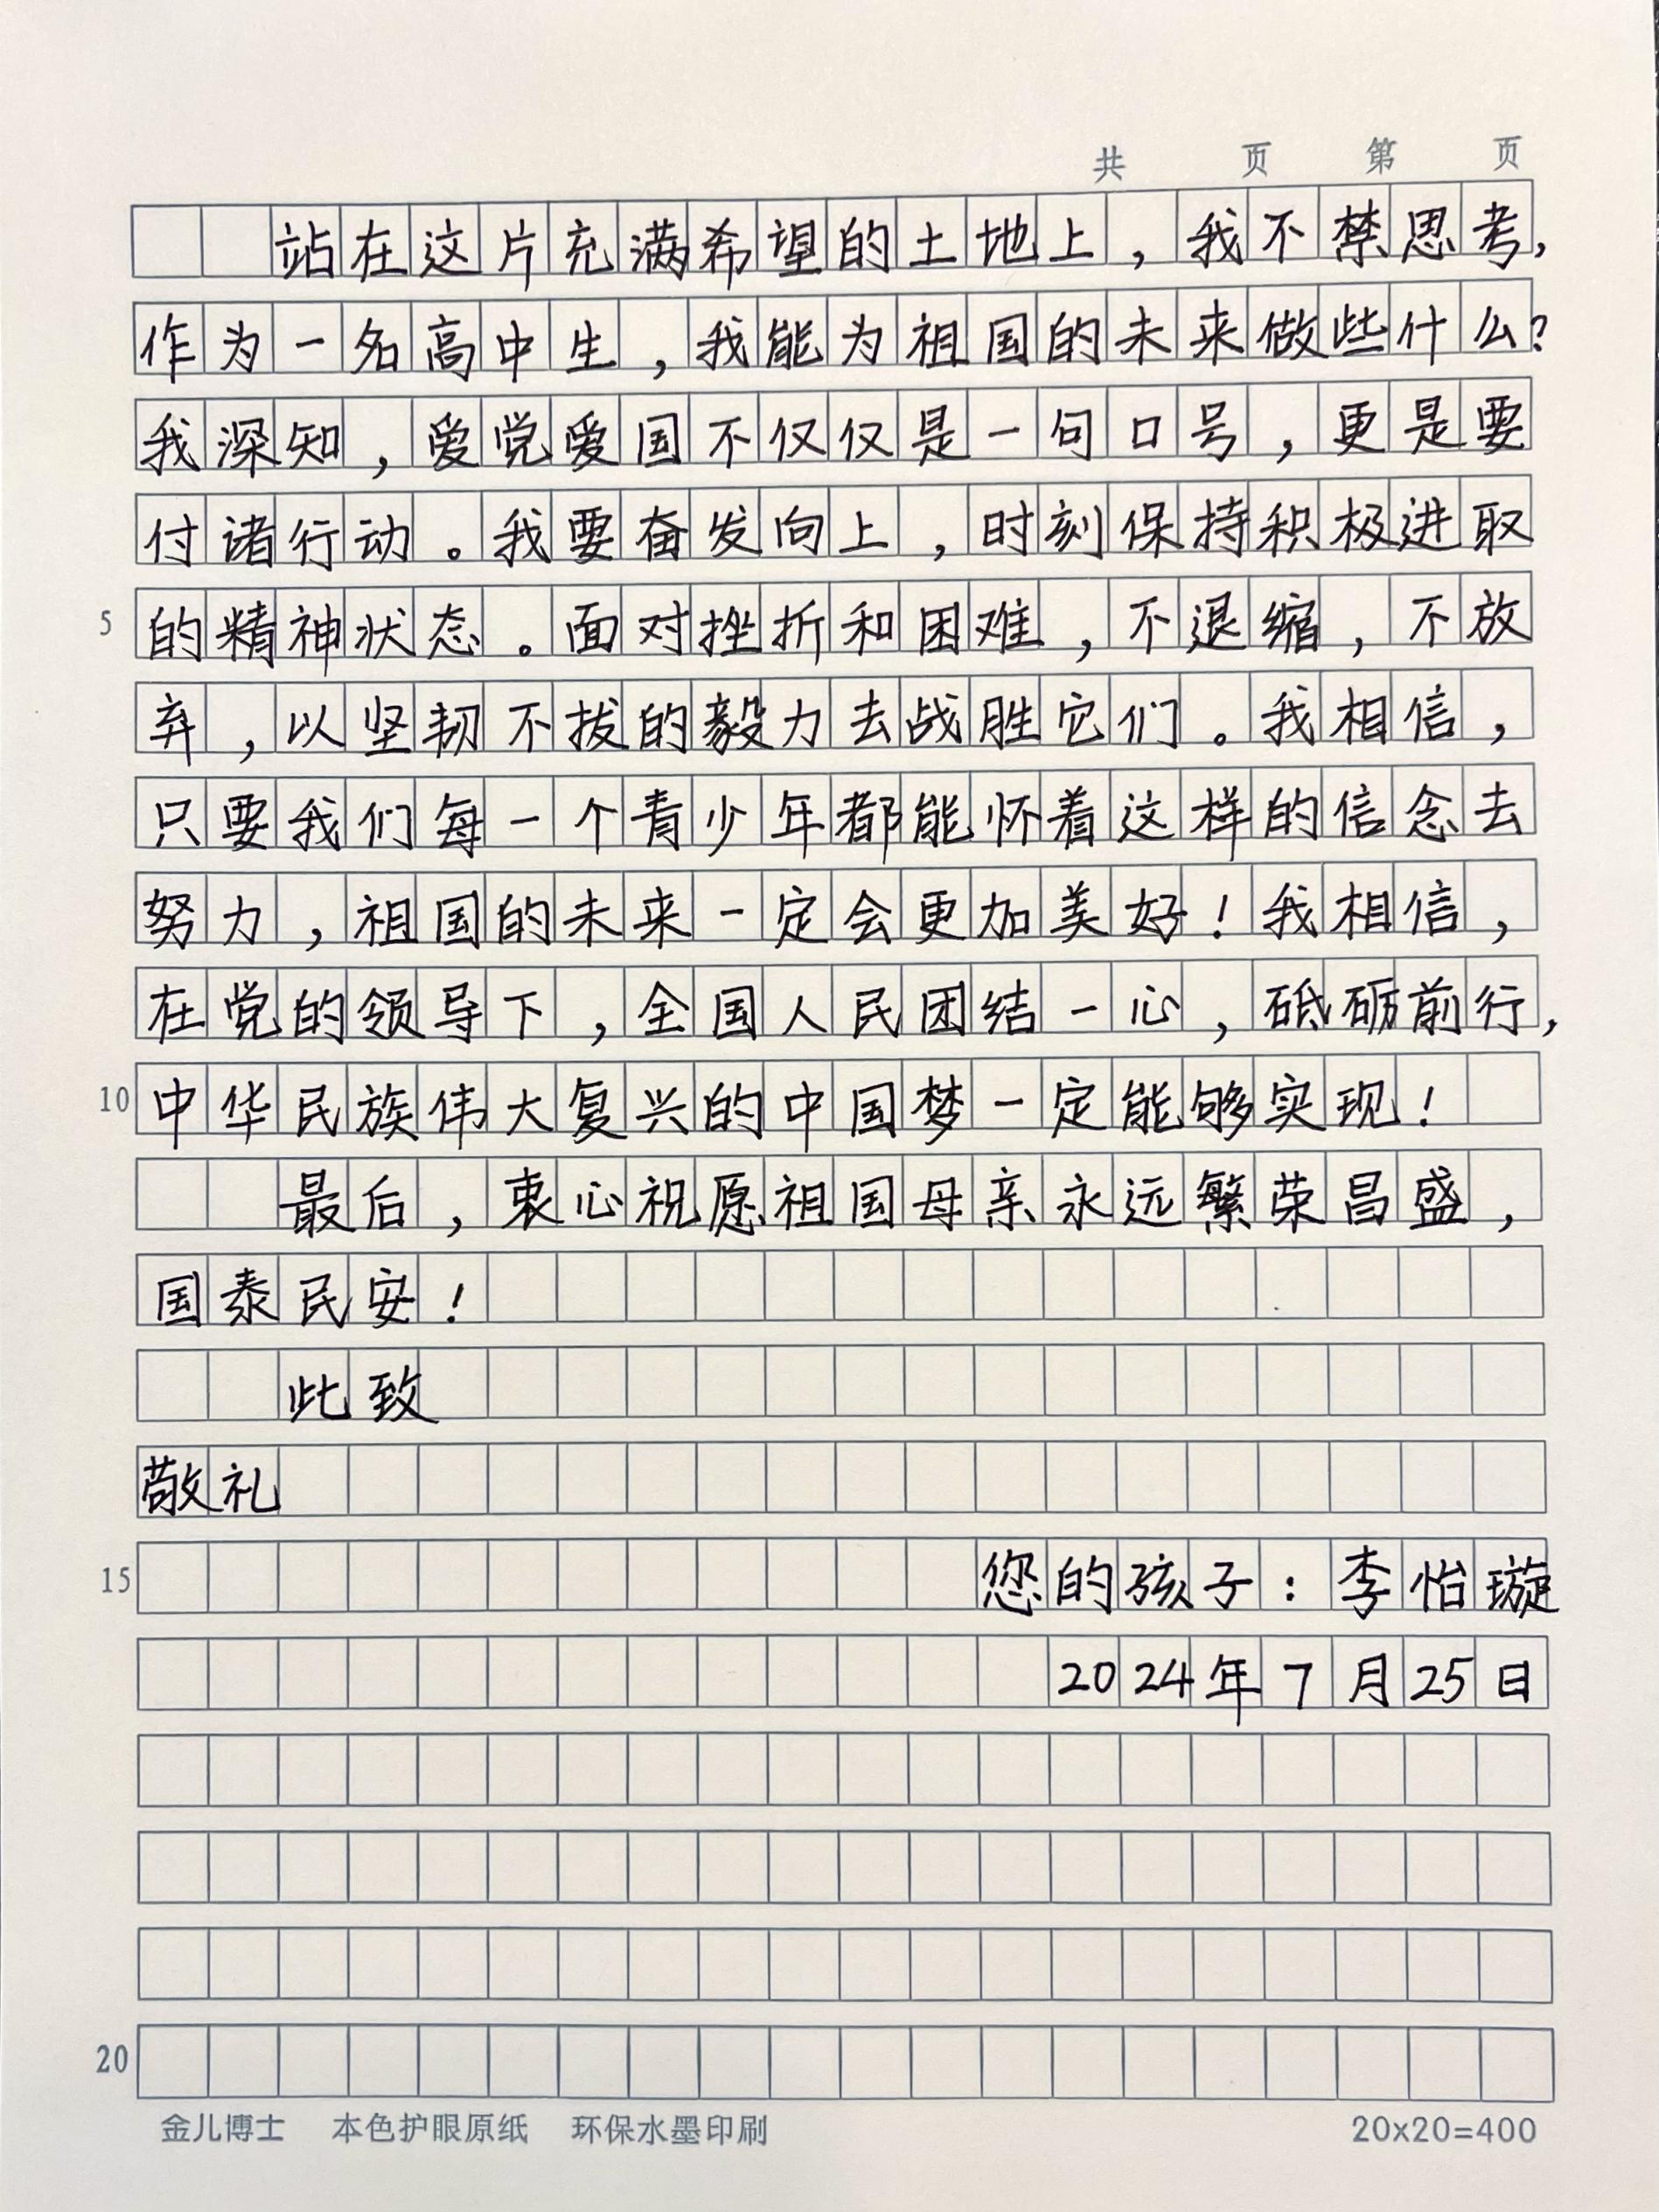 共 页 第 页
站在这片充满希望的土地上，我不禁思考，
作为一名高中生，我能为祖国的未来做些什么？
我深知，爱党爱国不仅仅是一句口号，更是要
付诸行动。我要奋发向上，时刻保持积极进取
5 的精神状态。面对挫折和困难，不退缩，不放
弃，以坚韧不拔的毅力去战胜它们。我相信，
只要我们每一个青少年都能怀着这样的信念去
努力，祖国的未来一定会更加美好！我相信，
在党的领导下，全国人民团结一心，砥砺前行，
10 中华民族伟大复兴的中国梦一定能够实现！
最后，衷心祝愿祖国母亲永远繁荣昌盛，
国泰民安！
此致
敬礼
15 您的孩子：李怡璇
2024年7月25日
20
金儿博士 本色护眼原纸 环保水墨印刷 20x20=400